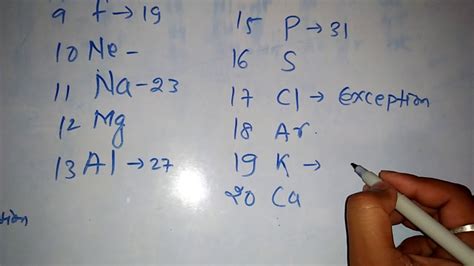 9 F → 19
10 Ne -
11 Na - 23
12 Mg
13 Al → 27
15 P → 31
16 S
17 Cl → Exception
18 Ar.
19 K →
20 Ca